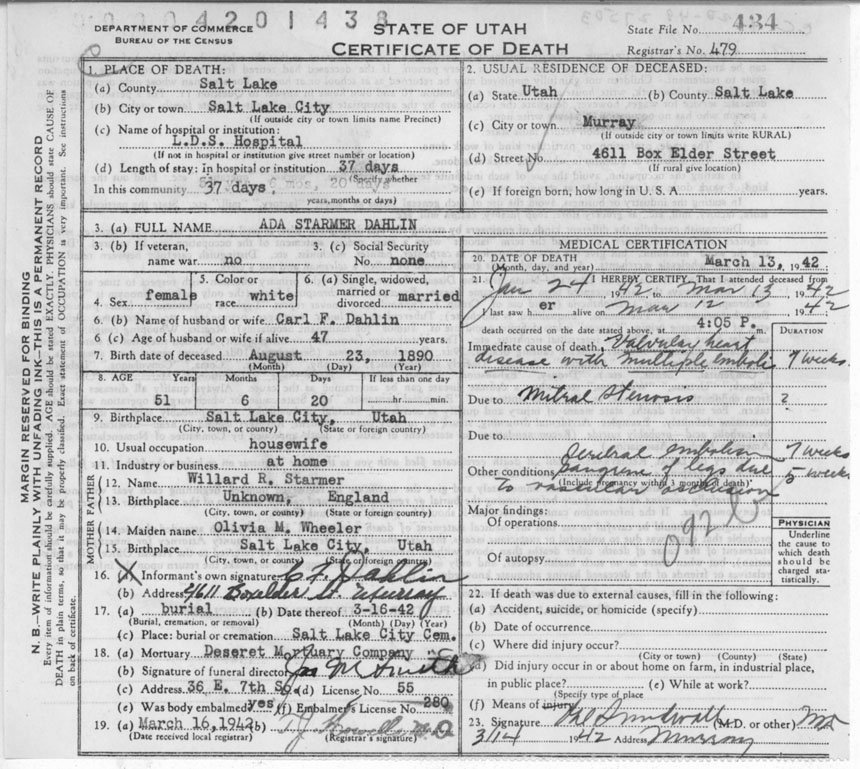 0004201438
DEPARTMENT OF COMMERCE
BUREAU OF THE CENSUS
STATE OF UTAH
CERTIFICATE OF DEATH
State File No. 434
Registrar's No. 479
MARGIN RESERVED FOR BINDING
N. B.—WRITE PLAINLY WITH UNFADING INK—THIS IS A PERMANENT RECORD
Every item of information should be carefully supplied. AGE should be stated EXACTLY. PHYSICIANS should state CAUSE OF
DEATH in plain terms, so that it may be properly classified. Exact statement of OCCUPATION is very important. See instructions
on back of certificate.
1. PLACE OF DEATH:
(a) County Salt Lake
(b) City or town Salt Lake City
(If outside city or town limits name Precinct)
(c) Name of hospital or institution:
L.D.S. Hospital
(If not in hospital or institution give street number or location)
(d) Length of stay: In hospital or institution 37 days
(Specify whether
In this community 37 days,
years, months or days)
2. USUAL RESIDENCE OF DECEASED:
(a) State Utah (b) County Salt Lake
(c) City or town Murray
(If outside city or town limits write RURAL)
(d) Street No 4611 Box Elder Street
(If rural give location)
(e) If foreign born, how long in U. S. A. years.
3. (a) FULL NAME ADA STARMER DAHLIN
3. (b) If veteran, name war no
3. (c) Social Security No. none
4. Sex female
5. Color or race white
6. (a) Single, widowed, married or divorced married
6. (b) Name of husband or wife Carl F. Dahlin
6. (c) Age of husband or wife if alive 47 years.
7. Birth date of deceased August 23, 1890
(Month) (Day) (Year)
8. AGE Years Months Days If less than one day
51 6 20 hr. min.
9. Birthplace Salt Lake City, Utah
(City, town, or county) (State or foreign country)
10. Usual occupation housewife
11. Industry or business at home
FATHER
12. Name Willard R. Starmer
13. Birthplace Unknown, England
(City, town, or county) (State or foreign country)
MOTHER
14. Maiden name Olivia M. Wheeler
15. Birthplace Salt Lake City, Utah
(City, town, or county) (State or foreign country)
16. X Informant's own signature C F Dahlin
(b) Address 4611 Boxelder St. Murray
17. (a) burial (b) Date thereof 3-16-42
(Burial, cremation, or removal) (Month) (Day) (Year)
(c) Place: burial or cremation Salt Lake City Cem.
18. (a) Mortuary Deseret Mortuary Company
(b) Signature of funeral director Jos M Smith
(c) Address 36 E. 7th So. (d) License No. 55
(e) Was body embalmed yes (f) Embalmer's License No. 280
19. (a) March 16, 1942 (b) T J Howells M.D
(Date received local registrar) (Registrar's signature)
MEDICAL CERTIFICATION
20. DATE OF DEATH
(Month, day, and year) March 13, 1942
21. I HEREBY CERTIFY, That I attended deceased from
Jan 24 1942, to Mar 13 1942
I last saw her alive on Mar 12 1942
death occurred on the date stated above, at 4:05 P. m.
DURATION
Immediate cause of death Valvular heart
disease with multiple emboli 7 weeks
Due to Mitral Stenosis ?
Due to
Cerebral embolism 7 weeks
Other conditions gangrene of legs due 5 weeks
(Include pregnancy within 3 months of death)
to vascular occlusion
Major findings:
Of operations
Of autopsy
092
PHYSICIAN
Underline
the cause to
which death
should be
charged sta-
tistically.
22. If death was due to external causes, fill in the following:
(a) Accident, suicide, or homicide (specify)
(b) Date of occurrence
(c) Where did injury occur?
(City or town) (County) (State)
(d) Did injury occur in or about home on farm, in industrial place,
in public place? (e) While at work?
(Specify type of place
(f) Means of injury
23. Signature Val Sundwall (M.D. or other) MD
3/14 1942 Address Murray